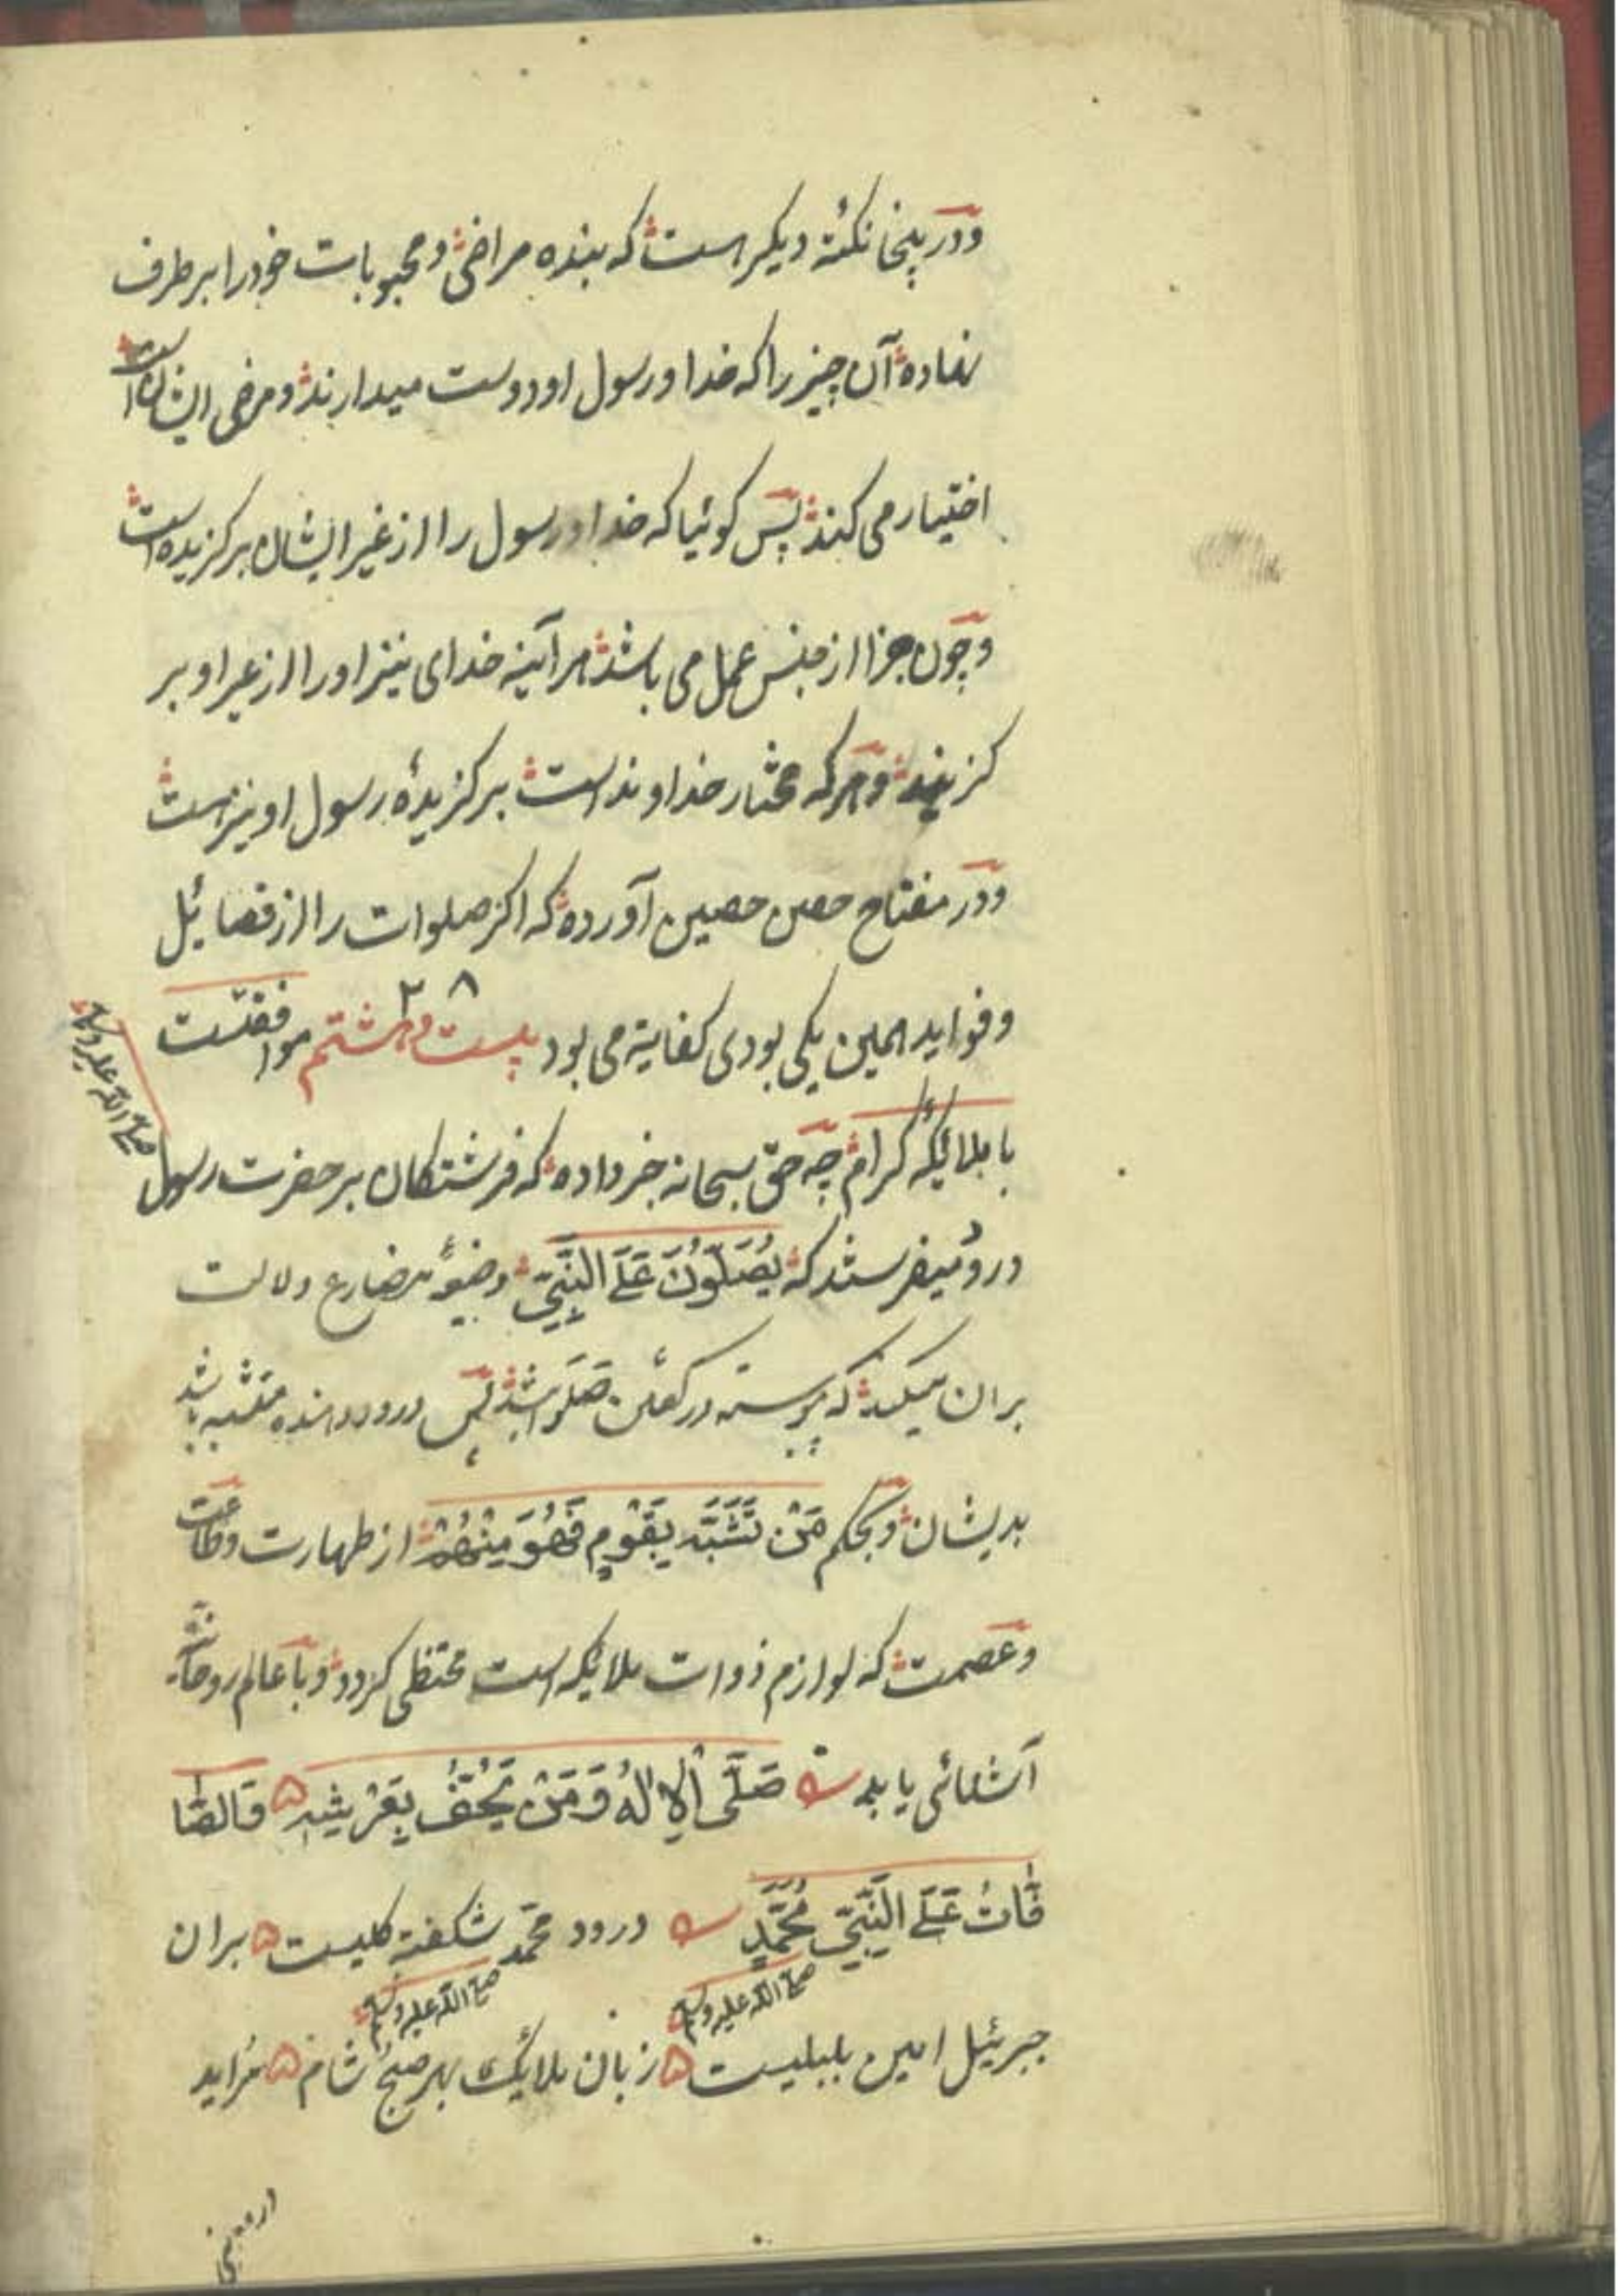 ودرینجا نکتهٔ دیکر است که بنده مراضی و محبوبات خود را بر طرف
نهاده آن چیز را که خدا و رسول او دوست میدارند و مرضی ایشان است
اختیار می کند پس کوئیا که خدا و رسول را از غیر ایشان برکزیده است
و چون جزا از جنس عمل می باشد هر آئینه خدای نیز او را از غیر او بر
کزیند و هر که مختار خداوند است برکزیدهٔ رسول او نیز است
و در مفتاح حصن حصین آورده که اکر صلوات را از فضائل
و فواید همین یکی بودی کفایة می بود بیست و هشتم ۲۸ موافقت
با ملائکه کرام چه حق سبحانه خبر داده که فرشتکان بر حضرت رسول
صلی الله علیه وسلم
درود میفرستند که یُصَلُّونَ عَلَی النَّبِیِّ و صیغهٔ مضارع دلالت
بران میکند که پیوسته در کفتن صلوا باشند پس درود دهنده متشبه باشد
بدیشان و بحکم مَنْ تَشَبَّهَ بِقَوْمٍ فَهُوَ مِنْهُمْ از طهارت و طاعت
و عصمت که لوازم ذوات ملایکه است محتظی کردد و با عالم روحانی
آشنائی یابد صَلَّی الْاِلٰهُ وَمَنْ یَحُفُّ بِعَرْشِهِ وَالطَّا
هِراتُ عَلَی النَّبِیِّ مُحَمَّدٍ درود محمد شکفته کلیست بران
صلی الله علیه وسلم صلی الله علیه وسلم
جبرئیل امین بلبلیست زبان ملائک بهر صبح و شام